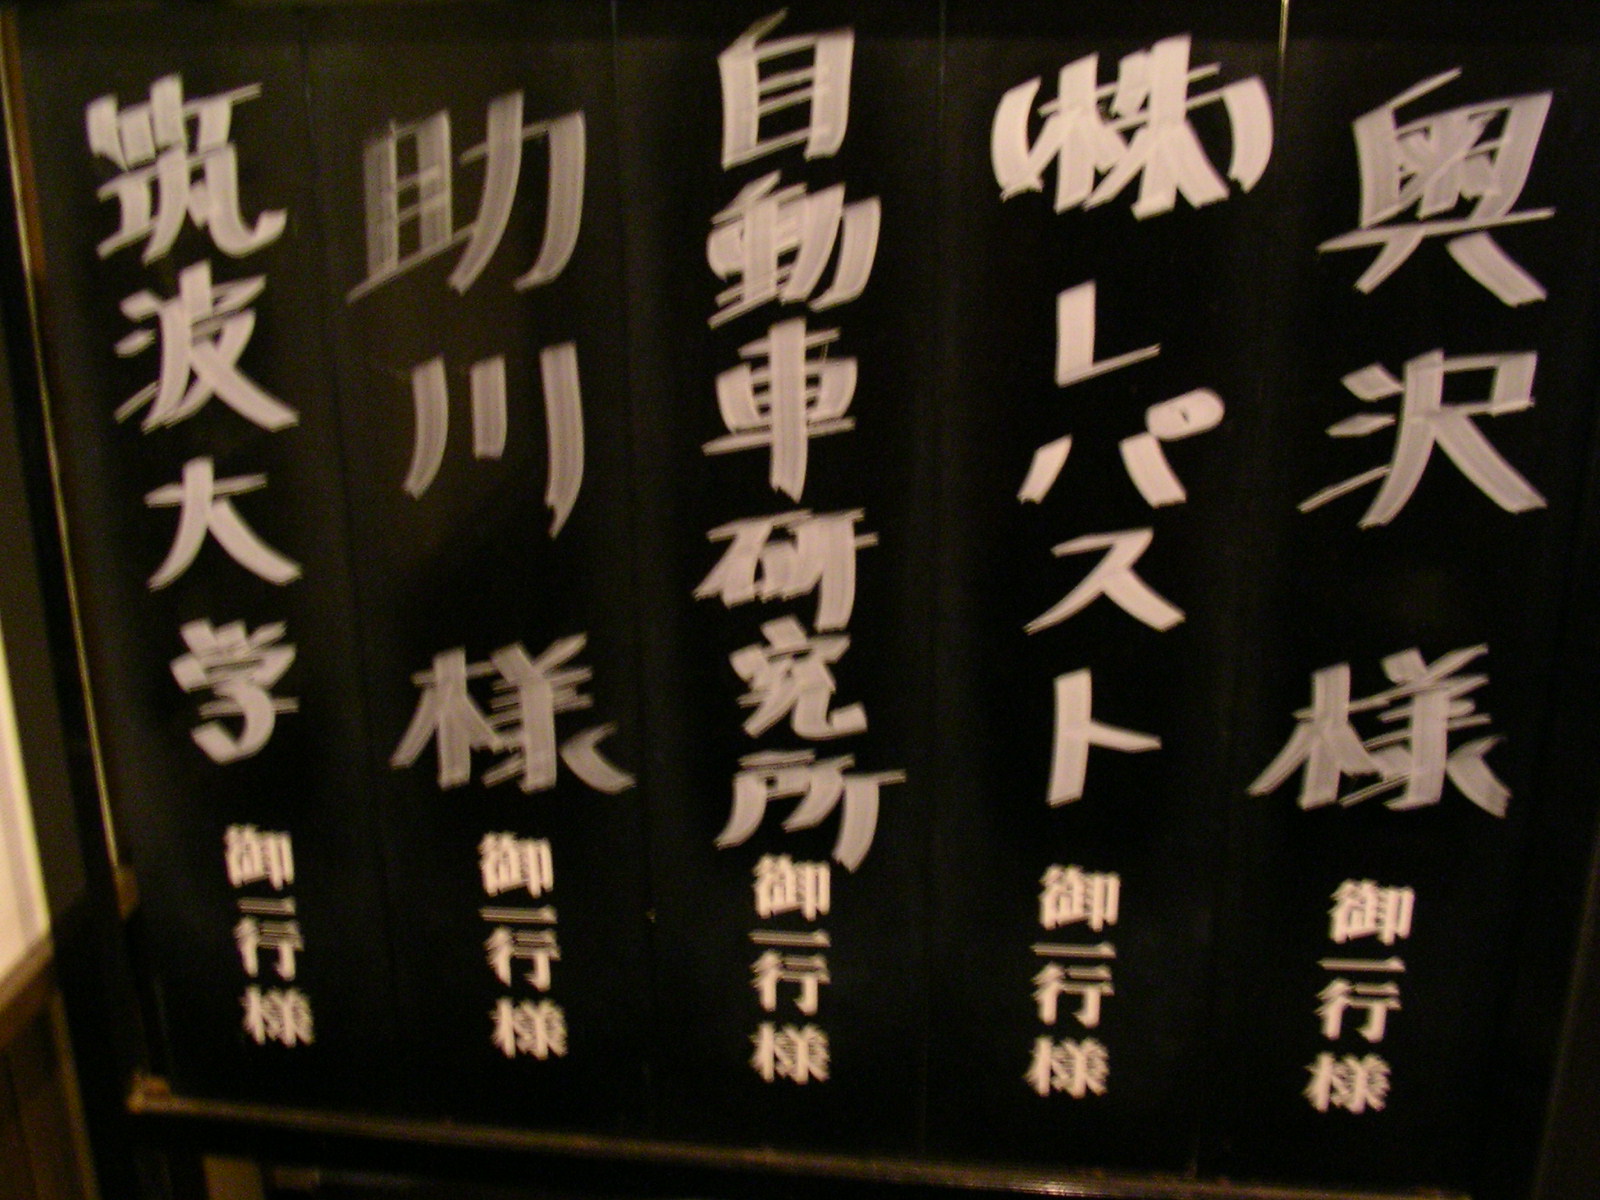 奥沢 様 御一行様
㈱レパスト 御一行様
自動車研究所 御一行様
助川 様 御一行様
筑波大学 御一行様